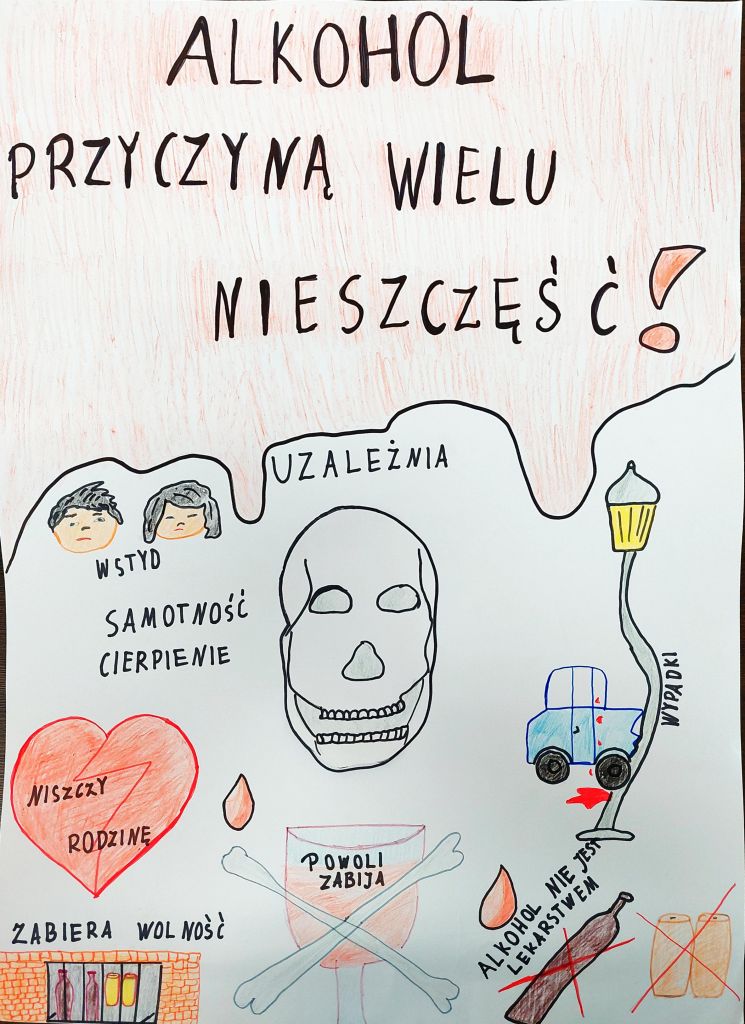 ALKOHOL
PRZYCZYNĄ WIELU
NIESZCZĘŚĆ!
UZALEŻNIA
WSTYD
SAMOTNOŚĆ
CIERPIENIE
WYPADKI
NISZCZY
RODZINĘ
POWOLI
ZABIJA
ALKOHOL NIE JEST
LEKARSTWEM
ZABIERA WOLNOŚĆ